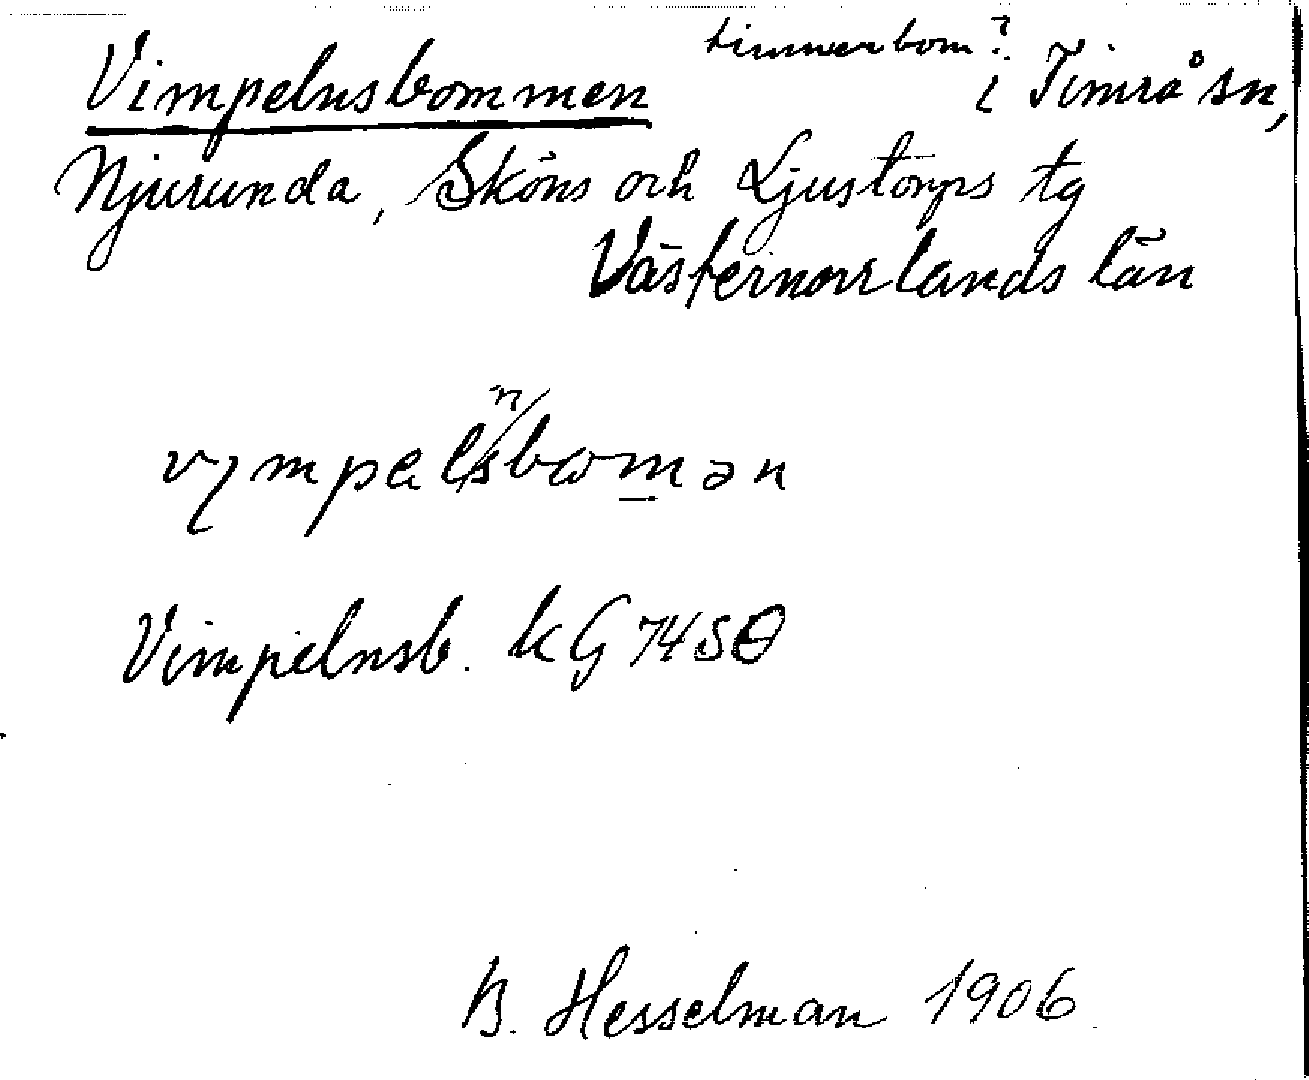 Vimpelnsbommen timmerbom? i Timrå sn,
Njurunda, Sköns och Ljustorps tg
Västernorrlands län
n
vympelsboman
Vimpelnsb. kG 74 SO
B. Hesselman 1906